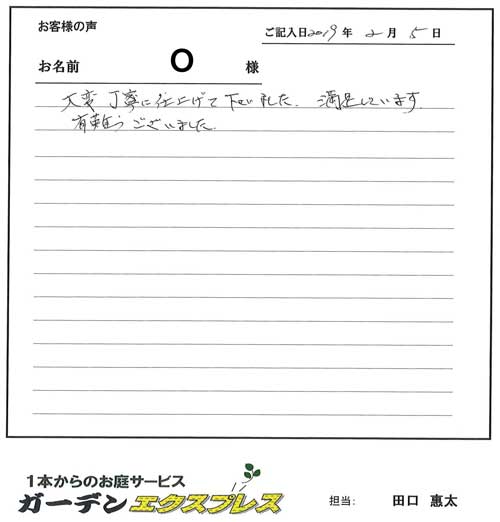 お客様の声
ご記入日2019年 2月 5日
お名前 O 様
大変 丁寧に仕上げて下さいました. 満足しています.
有難うございました.
1本からのお庭サービス
ガーデンエクスプレス
担当: 田口 惠太